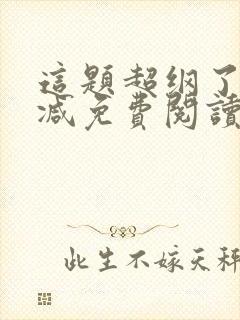 這題超纲了
減免費閱讀
此生不嫁天秤